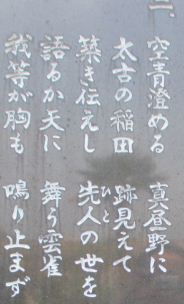 二
空青澄める　真昼野に
太古の稲田　跡見えて
築き伝えし　先人の世を
ひと
語るか天に　舞う雲雀
我等が胸も　鳴り止まず